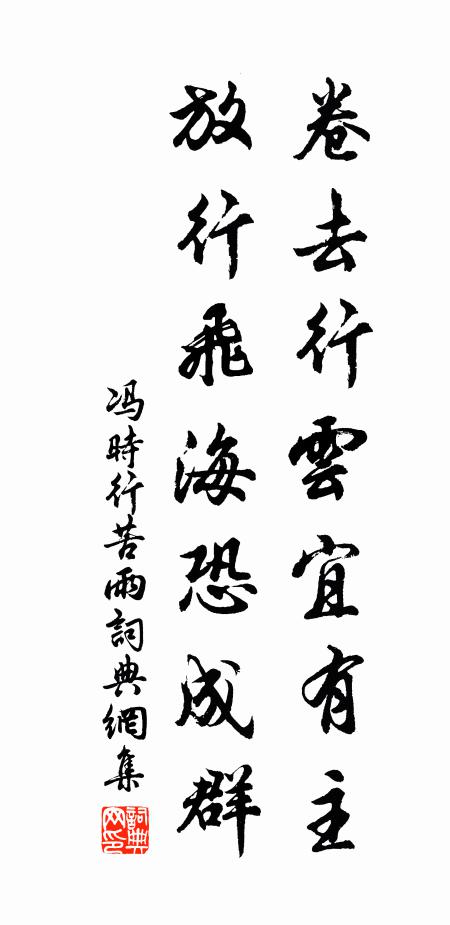 卷去行雲宜有主
放行飛海恐成群
冯時行苦雨詞典網集
詞典网印